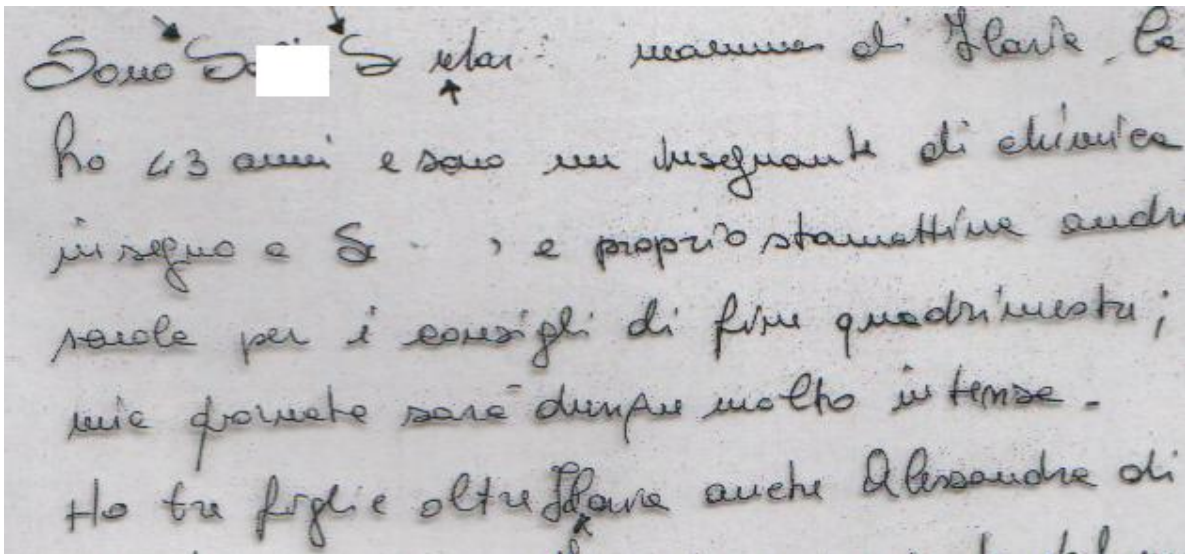 Sono S mamma di Ilaria
ho 43 anni e sono un insegnante di chimica
insegno a S , e proprio stamattina andr
scuola per i consigli di fine quadrimestre;
mia giornata sarà dunque molto intensa -
Ho tre figlie oltre Ilaria anche Alessandra di